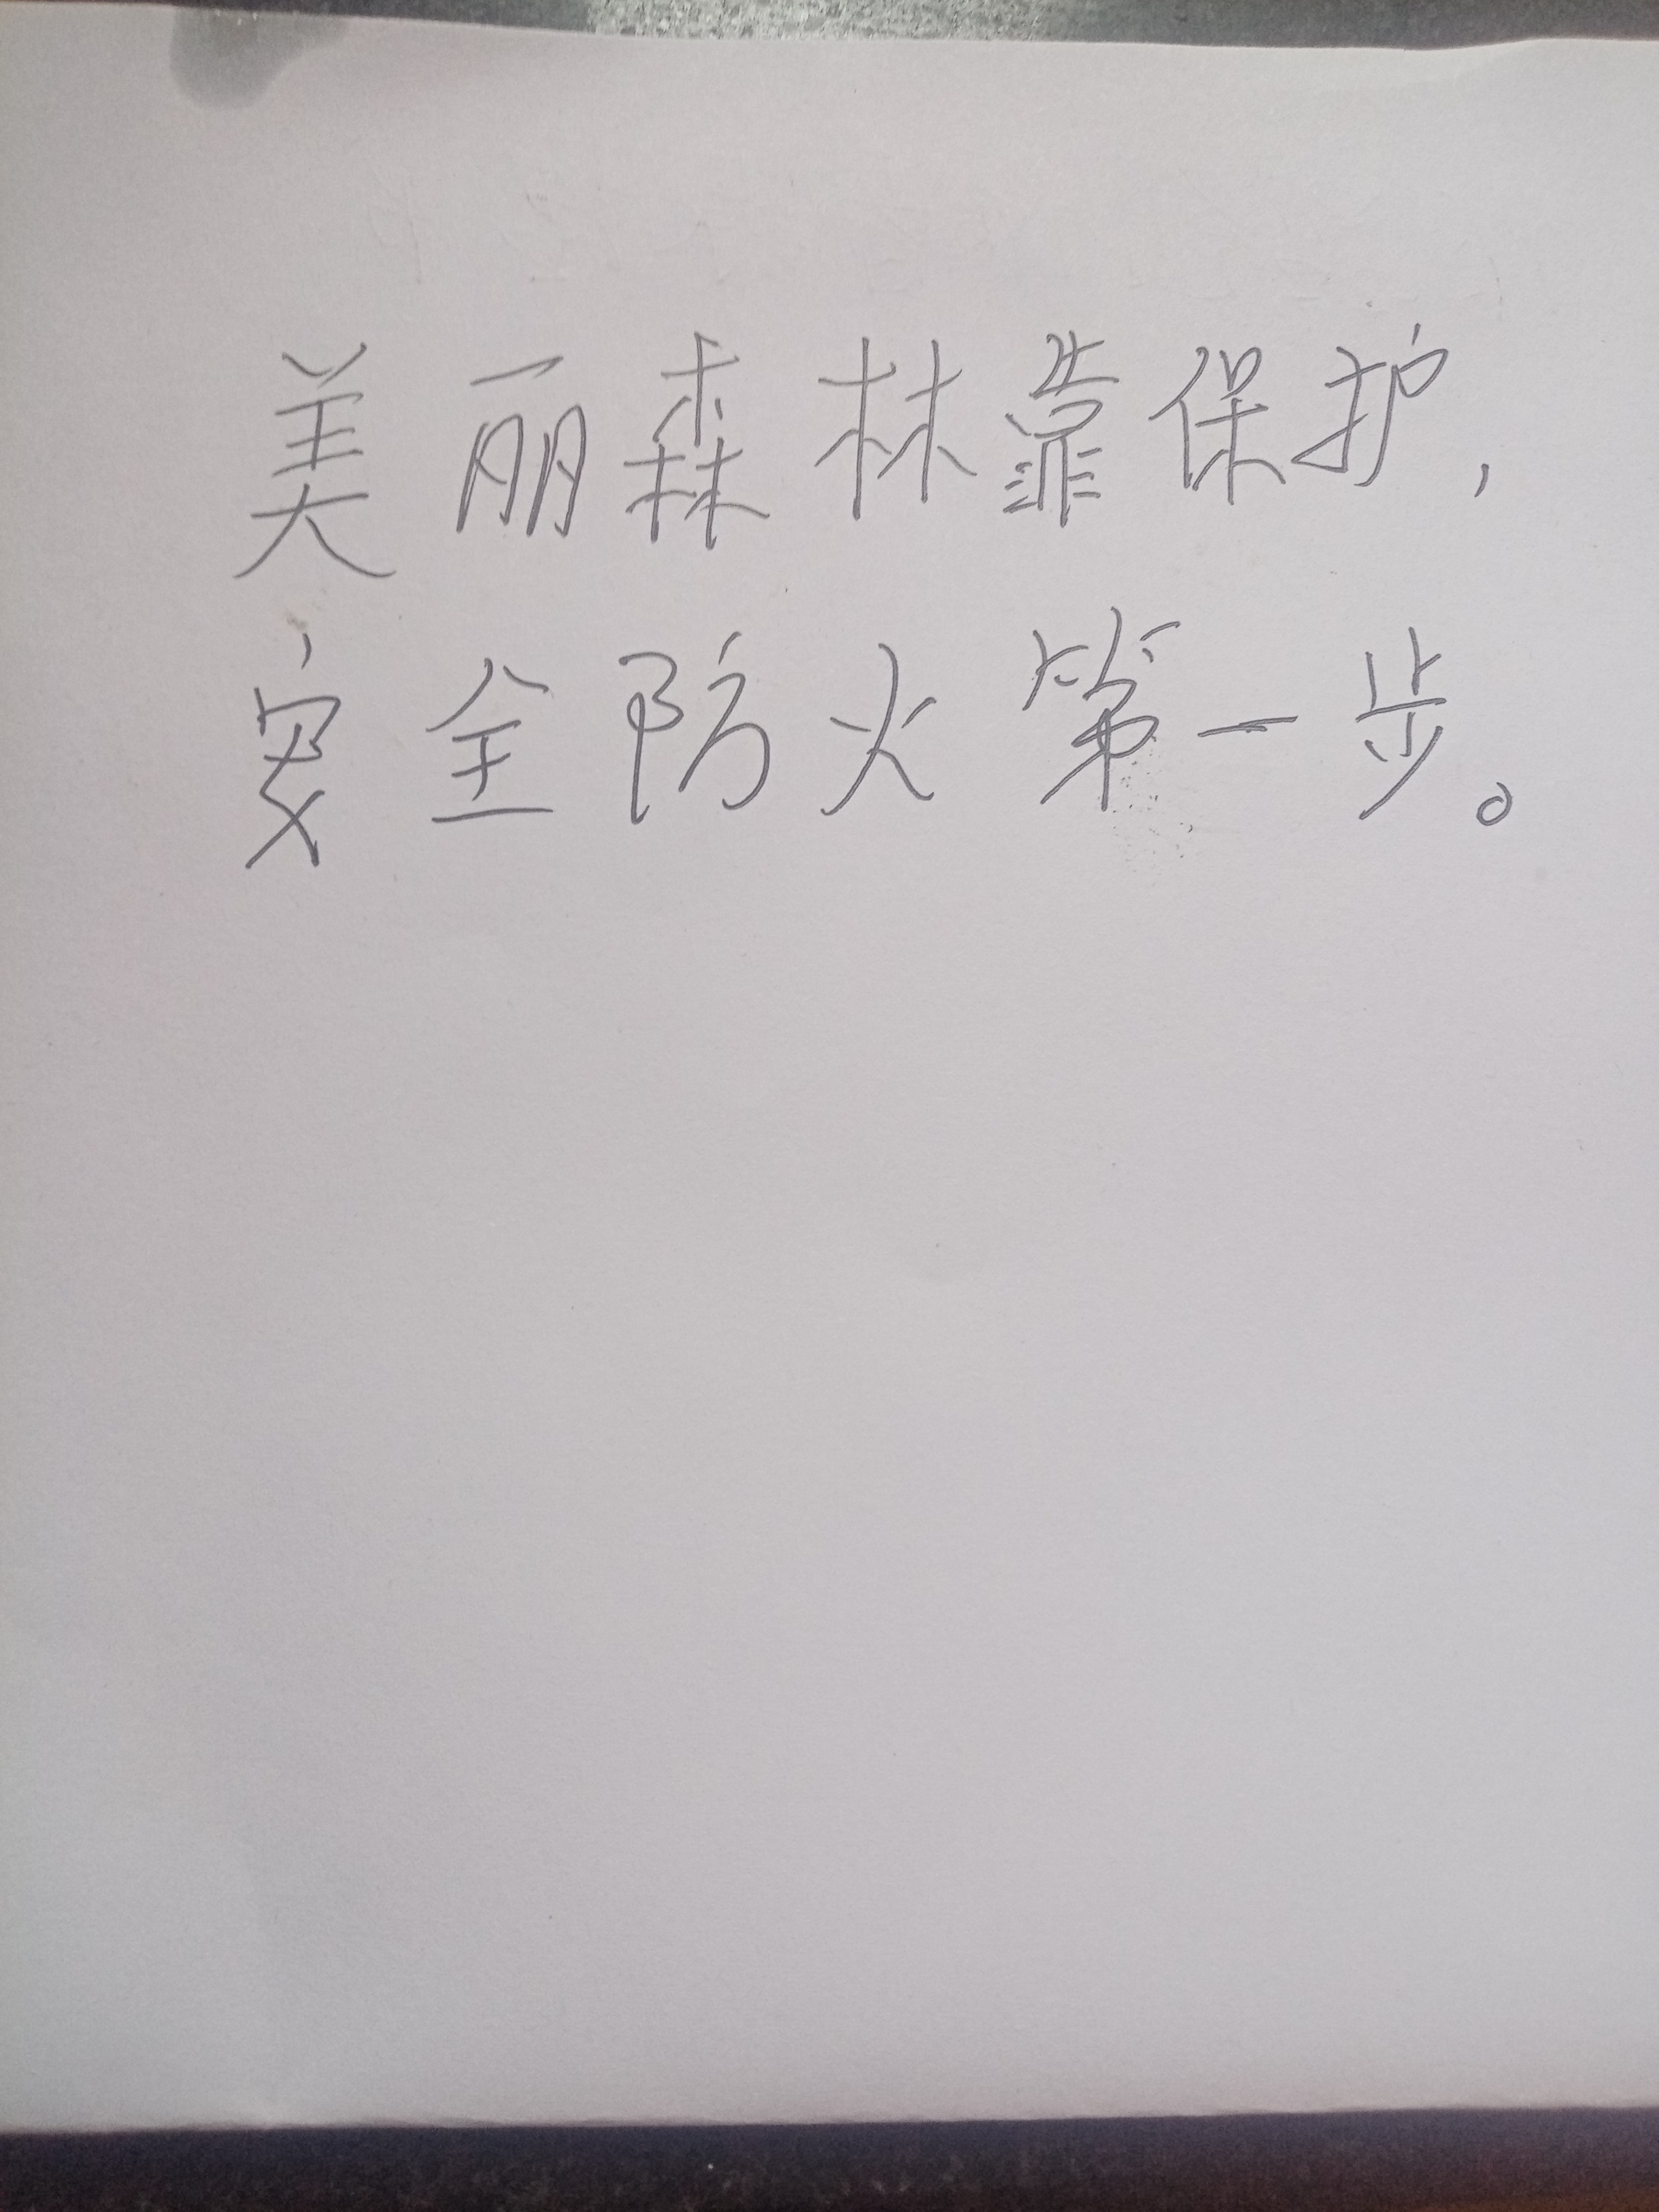 美丽森林靠保护，
安全防火第一步。